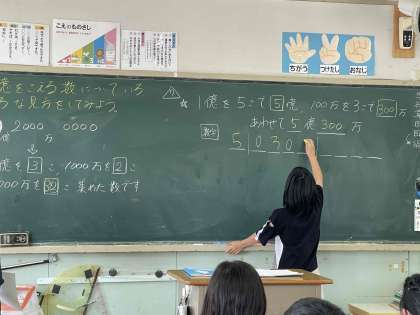 こえのものさし
ちがう
つけたし
おなじ
億をこえる数について
な見方をしてみよう
2000 0000
万
億を 3 こ、1000万を 2 こ
000万を 32 こ集めた数です
1億を5こで 5 億、100万を3つで 300 万
あわせて 5 億 300 万
数字
5 0 3 0